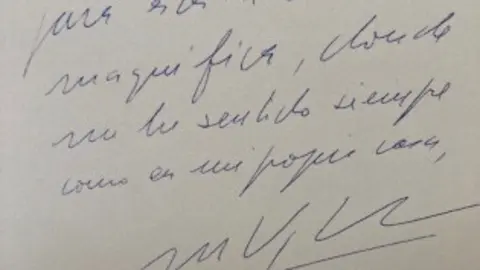 para esta
magnífica, donde
me he sentido siempre
como en mi propia casa,